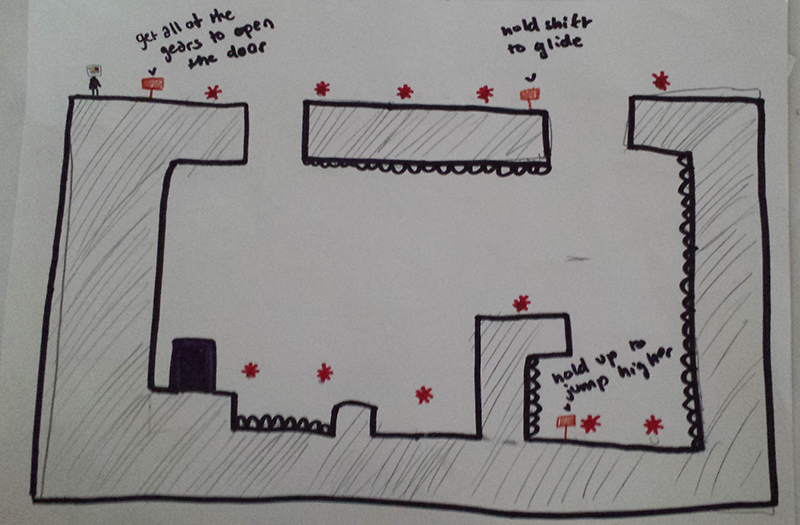 get all of the
gears to open
the door
hold shift
to glide
hold up to
jump higher